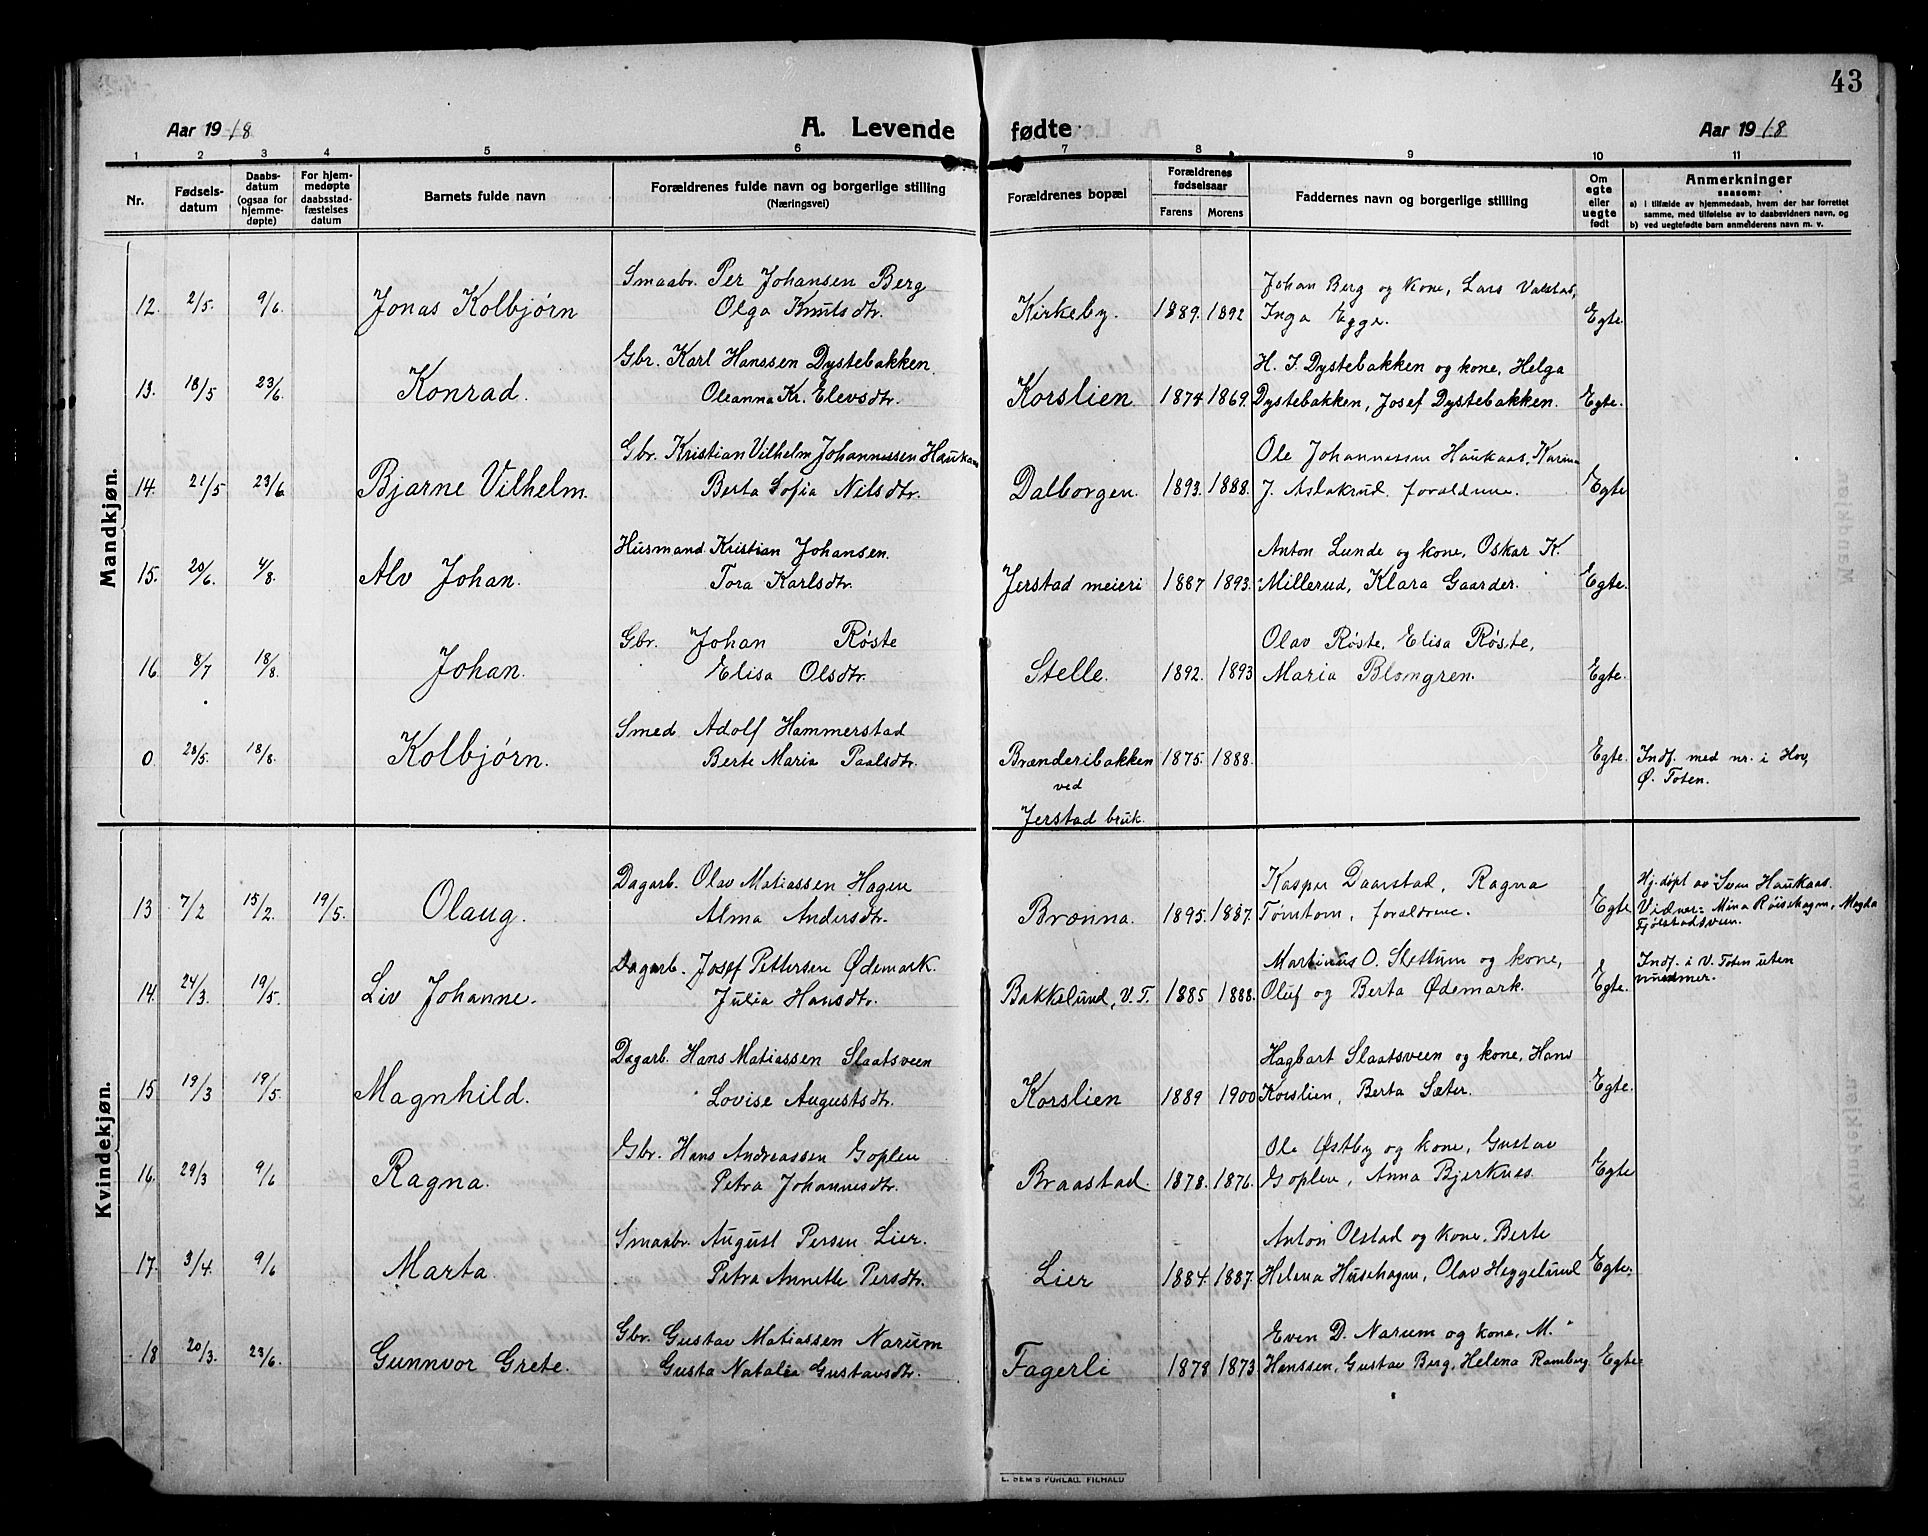 43
Aar 1918
A. Levende fødte.
Aar 1918
1 2 3 4 5 6 7 8 9 10 11
Nr.
Fødsels-
datum
Daabs-
datum
(ogsaa for
hjemme-
døpte)
For hjem-
medøpte
daabsstad-
fæstelses
datum
Barnets fulde navn
Forældrenes fulde navn og borgerlige stilling
(Næringsvei)
Forældrenes bopæl
Forældrenes
fødselsaar
Farens Morens
Faddernes navn og borgerlige stilling
Om
egte
eller
uegte
født
Anmerkninger
saasom:
a) i tilfælde av hjemmedaab, hvem der har forrettet
samme, med tilføielse av to daabsvidners navn, og
b) ved uegtefødte barn anmelderens navn m. v.
Mandkjøn.
Smaabr. Per Johansen Berg
Johan Berg og kone, Lars Valstad,
12. 2/5. 9/6. Jonas Kolbjørn Olga Knutsdtr. Kirkeby. 1889. 1892 Inga Egge. Egte.
Gbr. Karl Hanssen Dystebakken.
H. J. Dystebakken og kone, Helga
13. 18/5 23/6. Konrad. Oleanna Kr. Elevsdtr. Korslien. 1874 1869. Dystebakken, Josef Dystebakken. Egte.
Gbr. Kristian Vilhelm Johannessen Haukaas
Ole Johannessen Haukaas, Karina
14. 21/5 23/6 Bjarne Vilhelm. Berta Sofia Nilsdtr. Dalborgen. 1893. 1888. J. Aslakrud. forældrene. Egte
Husmand. Kristian Johansen.
Anton Lunde og kone, Oskar K.
15. 20/6. 4/8. Alv Johan. Tora Karlsdtr. Jerstad meieri 1887 1893. Millerud, Klara Gaarder. Egte.
Gbr. Johan Røste
Olav Røste, Elisa Røste,
16 8/7 18/8. Johan. Elisa Olsdtr. Stelle. 1892. 1893 Maria Blomgren. Egte.
Smed Adolf Hammerstad
0. 28/5. 18/8. Kolbjørn. Berte Maria Paalsdtr. Brænderibakken 1875. 1888. Egte. Indf. med nr. i Hov,
ved Ø. Toten.
Jerstad bruk.
Kvindekjøn.
Dagarb. Olav Matiassen Hagen
Kasper Daarstad, Ragna
Hj. døpt av Sven Haukaas.
13 7/2 15/2. 19/5. Olaug. Alma Andersdtr. Brønna. 1895. 1887. Tømtom, forældrene. Egte Vidner: Mina Røisehagen, Magda
Fjølstadsveen.
Dagarb. Josef Pettersen Ødemark.
Martinus O. Slettum og kone,
Indf. i V. Toten uten
14. 24/3. 19/5. Liv Johanne. Julia Hansdtr. Bakkelund, V. T. 1885 1888. Oluf og Berta Ødemark. Egte. nummer.
Dagarb. Hans Matiassen Slaatsveen
Hagbart Slaatsveen og kone, Hans
15 19/3 19/5. Magnhild. Lovise Augustsdtr. Korslien 1889 1900 Korslien, Berta Sæter. Egte.
Gbr. Hans Andreassen Goplen
Ole Østby og kone, Gustav
16. 29/3 9/6 Ragna. Petra Johannesdtr. Braastad. 1878. 1876. Goplen, Anna Bjerknes. Egte
Smaabr. August Persen Lier.
Anton Olstad og kone, Berte
17. 3/4. 9/6 Marta. Petra Annette Persdtr. Lier 1884. 1887. Helena Husehagen, Olav Heggelund Egte.
Gbr. Gustav Matiassen Narum
Even D. Narum og kone, M.
18 20/3. 23/6. Gunnvor Grete. Gusta Natalia Gustavsdtr. Fagerli 1878 1873 Hanssen, Gustav Berg, Helena Ramberg. Egte
E. SEM'S FORLAG, FR.HALD